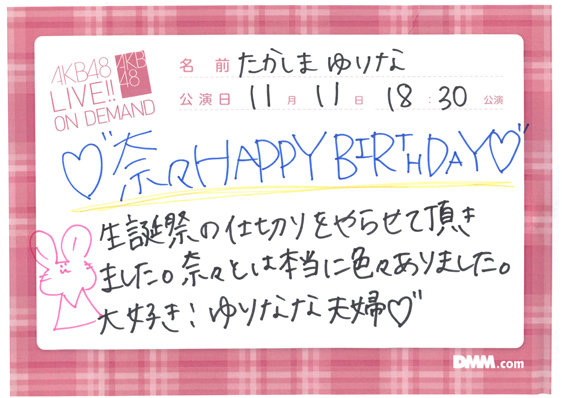 AKB48
LIVE!!
ON DEMAND
AKB
48
名前 たかしま ゆりな
公演日 11月 11日 18:30 公演
♡奈々HAPPY BIRTHDAY♡
生誕祭の仕切りをやらせて頂き
ました。奈々とは本当に色々ありました。
大好き!ゆりなな夫婦♡
DMM.com